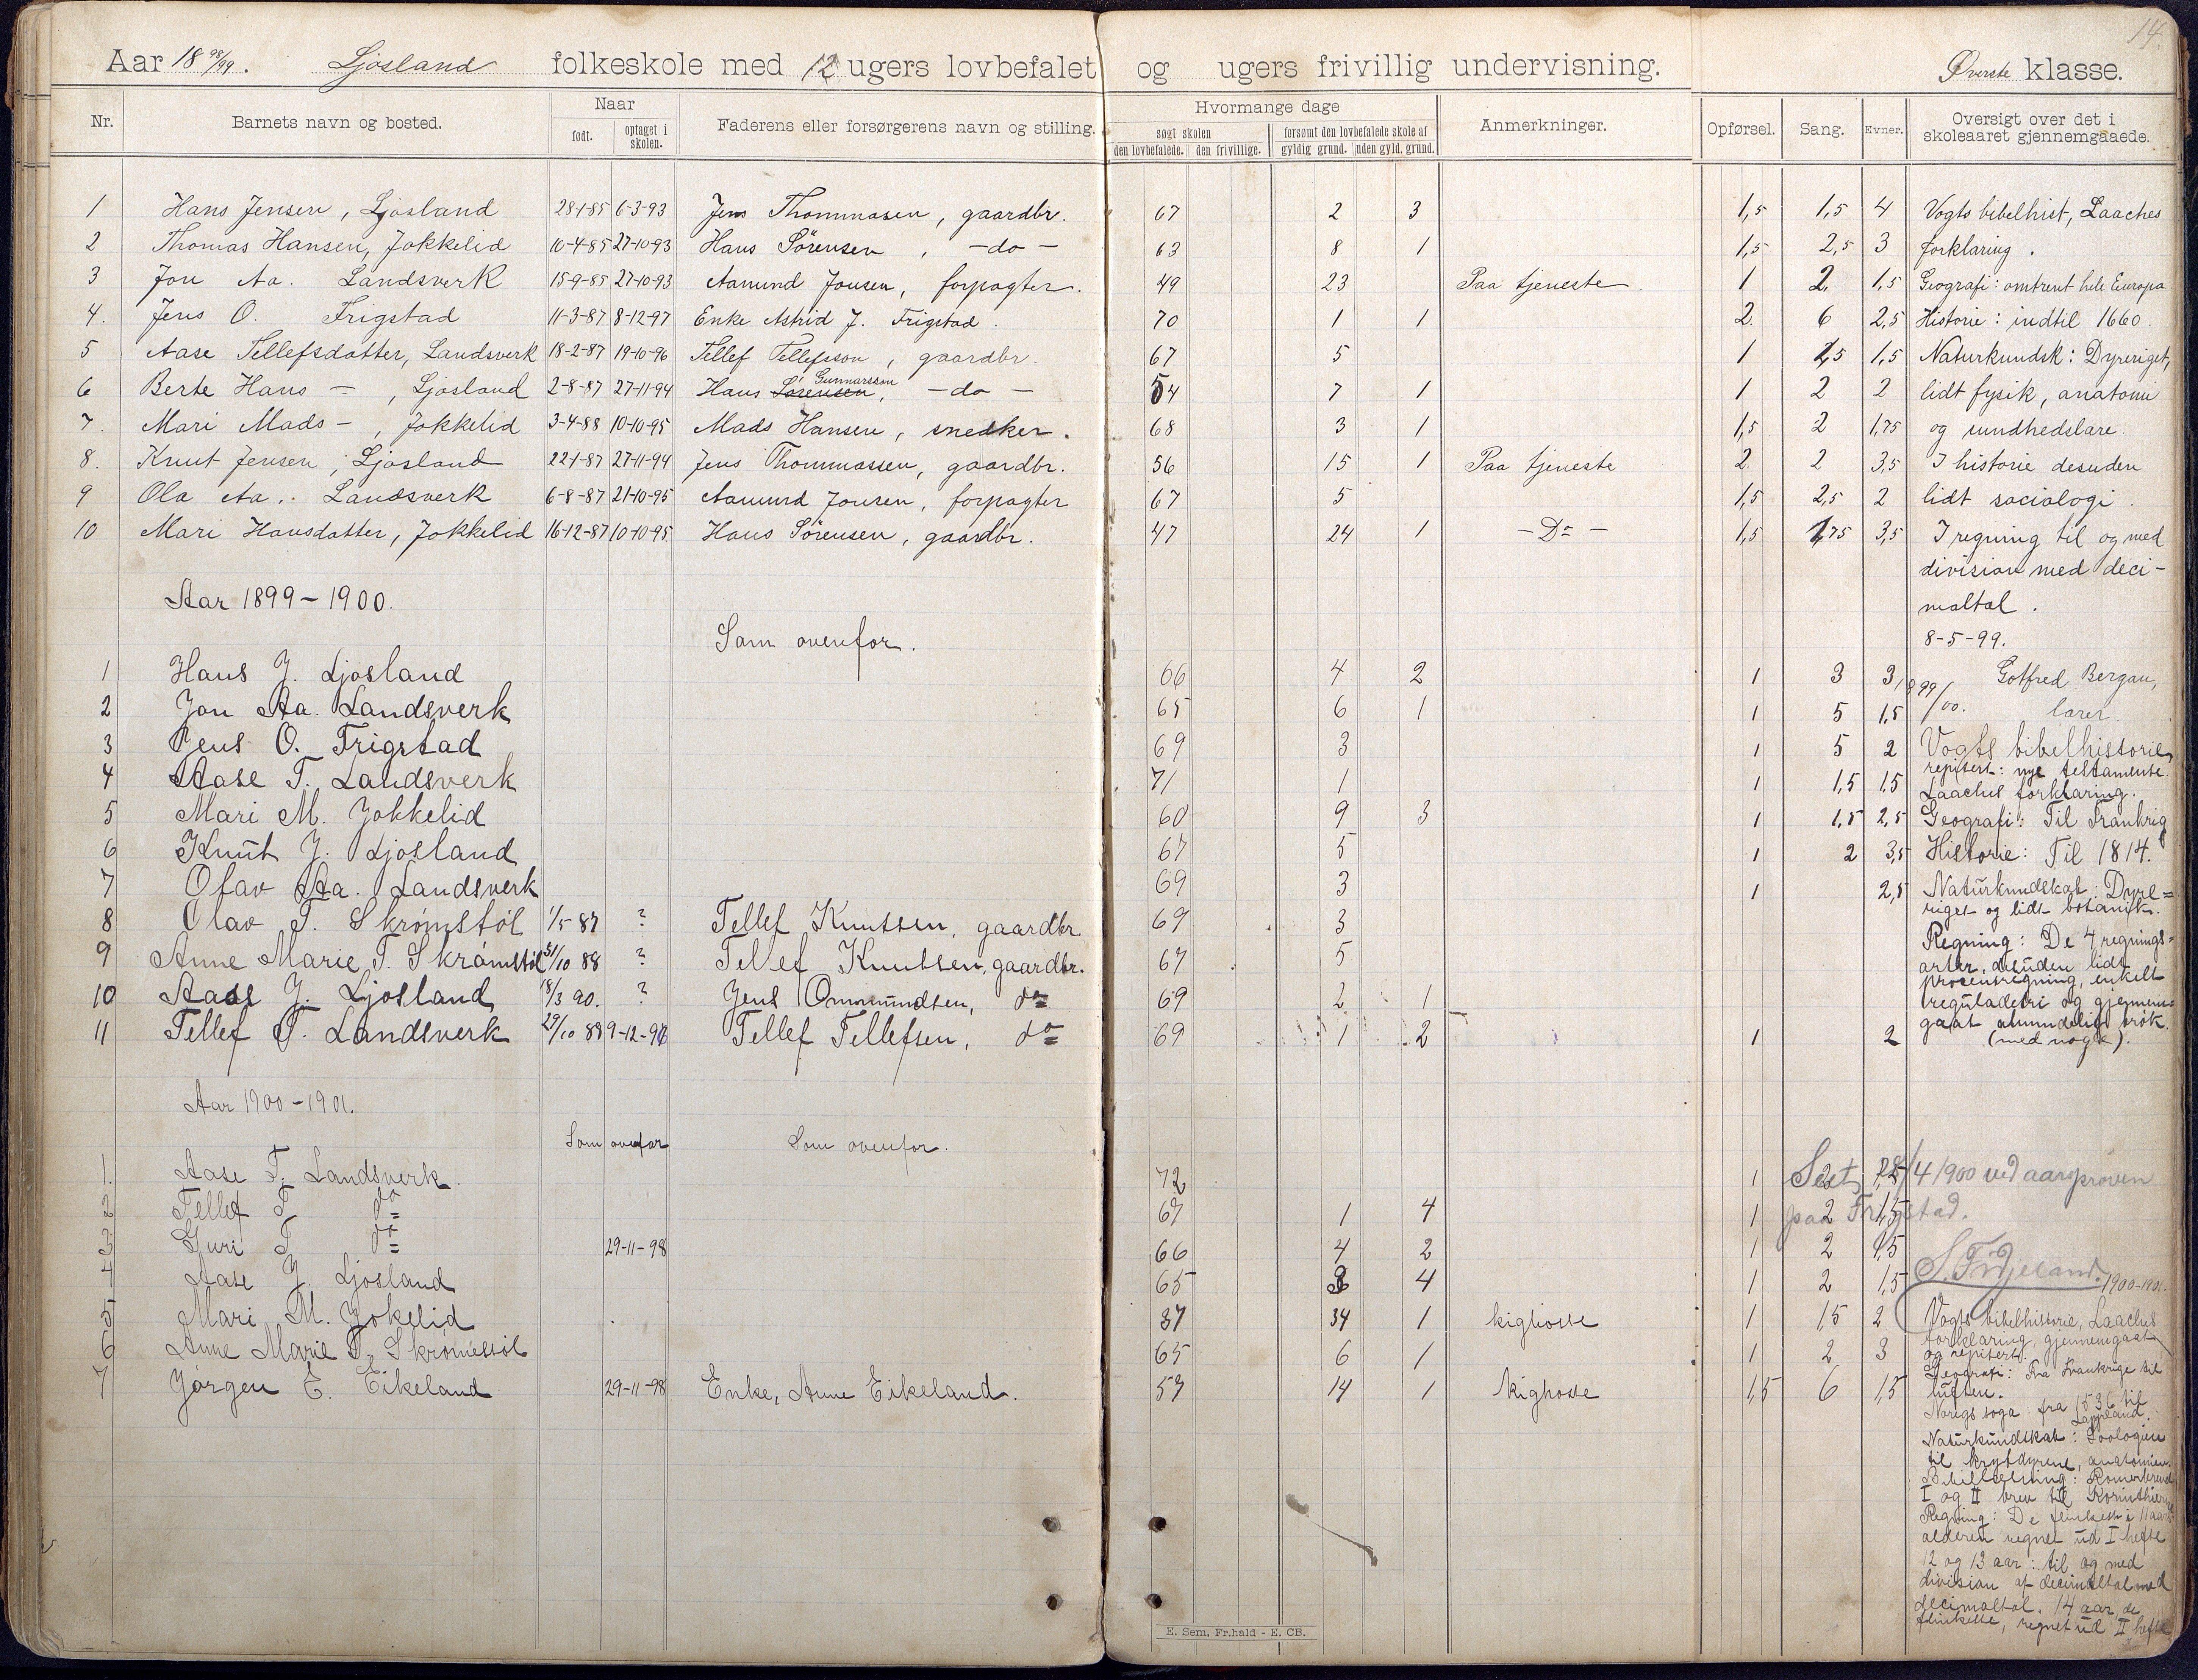 14.
Aar 18 98/99. Ljosland folkeskole med 12 ugers lovbefalet og ugers frivillig undervisning. Øverste klasse.
Nr. Barnets navn og bosted. Naar født. optaget i skolen. Faderens eller forsørgerens navn og stilling. Hvormange dage søgt skolen den lovbefalede. den frivillige. forsømt den lovbefalede skole af gyldig grund. uden gyld. grund. Anmerkninger. Opførsel. Sang. Evner. Oversigt over det i skoleaaret gjennemgaaede.
1 Hans Jensen, Ljosland 28-1-85 6-3-93 Jens Thommasen, gaardbr. 67 2 3 1,5 1,5 4 Vogts bibelhist, Laaches
2 Thomas Hansen, Jokkelid 10-4-85 27-10-93 Hans Sørensen, -do- 63 8 1 1,5 2,5 3 forklaring.
3 Jon Aa. Landsverk 15-9-85 27-10-93 Aamund Jonsen, forpagter. 49 23 Paa tjeneste 1 2 1,5 Geografi: omtrent hele Europa
4. Jens O. Frigstad 11-3-87 8-12-97 Enke Astrid J. Frigstad. 70 1 1 2 6 2,5 Historie: indtil 1660.
5 Aase Tellefsdatter, Landsverk 18-2-87 19-10-96 Tellef Tellefsson, gaardbr. 67 5 1 1,5 1,5 Naturkundsk: Dyreriget,
6 Berte Hans -, Ljosland 2-8-87 27-11-94 Hans Sørensen Gunnarsson, -do- 54 7 1 1 2 2 lidt fysik, anatomi
7. Mari Mads -, Jokkelid 3-4-88 10-10-95 Mads Hansen, snedker. 68 3 1 1,5 2 1,75 og sundhedslære.
8. Knut Jensen, Ljosland 22-1-87 27-11-94 Jens Thommassen, gaardbr. 56 15 1 Paa tjeneste 2 2 3,5 I historie desuden
9 Ola Aa. Landsverk 6-8-87 21-10-95 Aamund Jonsen, forpagter 67 5 1,5 2,5 2 lidt sociologi.
10 Mari Hansdatter, Jokkelid 16-12-87 10-10-95 Hans Sørensen, gaardbr. 47 24 1 -Do- 1,5 1,75 3,5 I regning til og med
division med deci-
Aar 1899-1900.
maltal.
Som ovenfor. 8-5-99.
1 Hans J. Ljosland 66 4 2 1 3 3 Gotfred Bergan,
2 Jon Aa. Landsverk 65 6 1 1 5 1,5 1899/00. lærer.
3 Jens O. Frigstad 69 3 1 5 2 Vogts bibelhistorie
repitert: nye testamente.
4 Aase T. Landsverk 71 1 1 1,5 1,5 Laaches forklaring.
5 Mari M. Jokkelid 60 9 3 1 1,5 2,5 Geografi: Til Frankrig
6 Knut J. Ljosland 67 5 1 2 3,5 Historie: Til 1814.
7 Olav Aa. Landsverk 69 3 1 2,5 Naturkundskab: Dyre=
riget og lidt botanik.
8 Olav T. Skrømstøl 1/5 87 ? Tellef Knutsen, gaardbr 69 3
Regning: De 4 regnings=
9 Anne Marie T. Skrømstøl 31/10 88 ? Tellef Knutsen, gaardbr. 67 5 arter, desuden lidt
prosentregning, enkelt
10 Aase J. Ljosland 18/3 90. ? Jens Ommundsen, do 69 2 1 reguladetri og gjennem=
11 Tellef T. Landsverk 29/10 88 9-12-96 Tellef Tellefsen, do 69 1 2 1 2 gaat almindelig brøk.
Aar 1900-1901.
Som ovenfor Som ovenfor.
1. Aase T. Landsverk. 72 1 2 1,5
Seet 28/4 1900 ved aarsprøven
2 Tellef T do 67 1 4 1 2 1,5
paa Frigstad.
3 Guri T do 29-11-98 66 4 2 1 2 1,5
4 Aase J. Ljosland 65 3 4 1 2 1,5 1900-1901.
5 Mari M. Jokelid 37 34 1 kighoste 1 1,5 2 Vogts bibelhistorie, Laaches
forklaring, gjennemgaat
6 Anne Marie T. Skrømestøl 65 6 1 1 2 3 og repitert.
Geografi: Fra Frankrige til
7 Jørgen E. Eikeland 29-11-98 Enke, Anne Eikeland. 57 14 1 kighoste 1,5 6 1,5 luften.
Norigs soga: fra 1536 til
Lappland.
Naturkundskab: Zoologien
til krybdyrene, anatomien.
Bibellesning: Romerbrevet
I og II brev til Korinthierne
Regning: De flinkeste i 11 aars
alderen regnet ud I hefte
12 og 13 aar: til og med
division af decimaltal med
decimaltal. 14 aar, de
flinkeste, regnet ud II hefte
E. Sem, Fr.hald - E. CB.